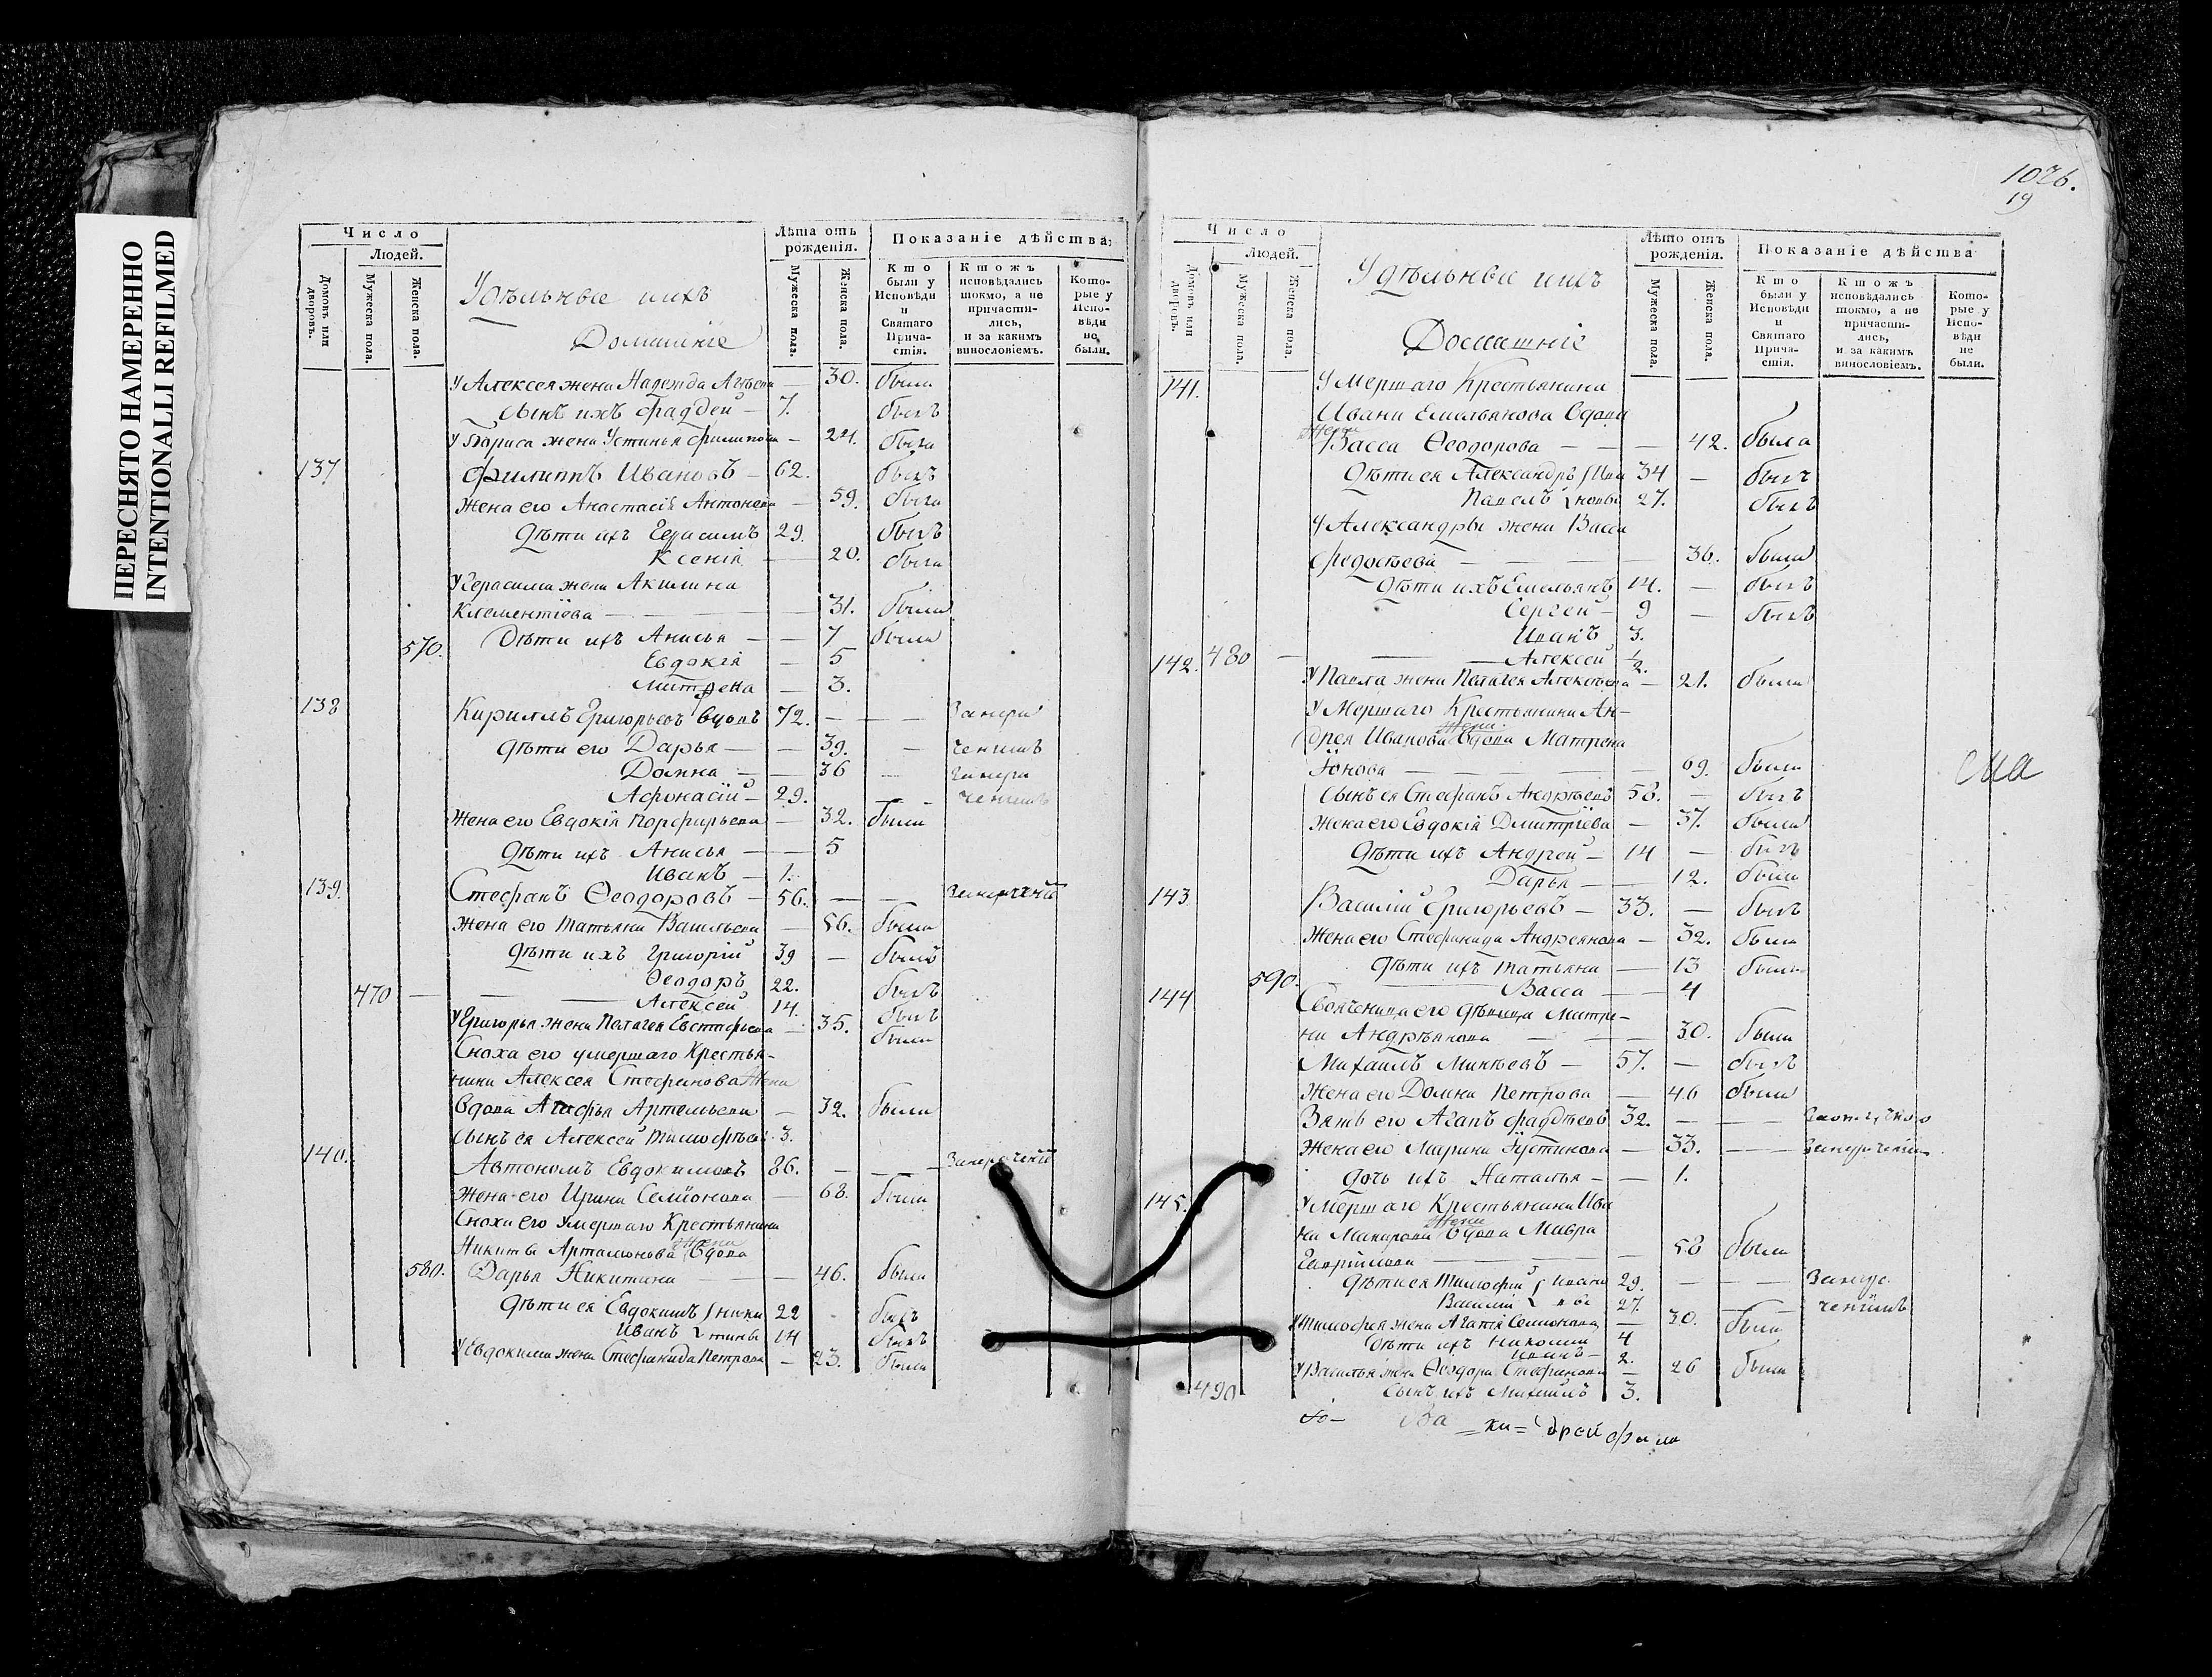 ПЕРЕСНЯТО НАМЕРЕННО
INTENTIONALLI REFILMED
Число
Людей.
Домовъ или дворовъ.
Мужеска пола.
Женска пола.
Удѣльные ихъ
Домашніе
Лѣта отъ рожденія.
Мужеска пола.
Женска пола.
Показаніе дѣйства;
Кто были у Исповѣди и Святаго Причастія.
Ктожъ исповѣдались токмо, а не причастились, и за какимъ винословіемъ.
Которые у Исповѣди не были.
У Алексея жена Надежда — 30. была
Сынъ ихъ Фаддей — 7. былъ
У Бориса жена Устинья Филипова — 24. была
137 Филиппъ Ивановъ — 62. былъ
Жена его Анастасія Антонова — 59. была
Дѣти ихъ Герасимъ 29. былъ
Ксенія — 20. была
У Герасима жена Акилина
Клементіева — 31. была
570. Дѣти ихъ Анисья — — 7 была
Евдокія — 5
Митрена — 3.
138 Кириллъ Григорьевъ вдовъ 72. — — Запере
Дѣти его Дарья — — 39. — ченіемъ
Домна — — 36 — Запере
Афонасій — 29. — — ченіемъ
Жена его Евдокія Порфирьева — 32. была
Дѣти ихъ Анисья — — 5
Иванъ — 1.
139. Стефанъ Ѳеодоровъ — 56. — —
Жена его Татьяна Васильева — 56. была
Дѣти ихъ Григорій 39 — былъ
Ѳеодоръ 22. былъ
470 — — — Алексей 14. былъ
У Григорья жена Пелагея Евстафьева — 35. была
Сноха его умершаго Крестья-
нина Алексея Стефанова жена
Вдова Агафья Артемьева — 32. была
Сынъ ея Алексей Тимофѣевъ 3.
140. Автономъ Евдокимовъ 86. — —
Жена его Ирина Семіонова — 68. была
Сноха его умершаго Крестьянина
Никиты Артамонова жена Вдова
580. Дарья Никитина — — 46. была
Дѣти ея Евдокимъ Ники 22 былъ
Иванъ тины 14 былъ
У Евдокима жена Стефанида Петрова — 23. была
1026.
19
Число
Людей.
Домовъ или дворовъ.
Мужеска пола.
Женска пола.
Удѣльные ихъ
Домашніе
Лѣто отъ рожденія.
Мужеска пола.
Женска пола.
Показаніе дѣйства
Кто были у Исповѣди и Святаго Причастія.
Ктожъ исповѣдались токмо, а не причастились, и за какимъ винословіемъ.
Которые у Исповѣди не были.
141. Умершаго Крестьянина
Ивана Емельянова вдова
жена
Васса Ѳеодорова — — — 42. была
Дѣти ея Александръ Ива 34 — былъ
Павелъ новы 27. былъ
У Александры жена Васса
Федосѣева — — — 36. была
Дѣти ихъ Емельянъ 14. — былъ
Сергей — 9 — былъ
Иванъ 3.
142. 480 — — — Алексей ½.
У Павла жена Пелагея Алексѣева — 21. была
Умершаго Крестьянина Ан-
дрея Иванова жена вдова Матрена
Іонова — — — — 69. была
Сынъ ея Стефанъ Андрѣевъ 58. — былъ
Жена его Евдокія Дмитріева — 37. была
Дѣти ихъ Андрей — 14 — былъ
Дарья — — 12. была
143 Василій Григорьевъ — 33. — былъ
Жена его Стефанида Андреянова — 32. была
Дѣти ихъ Татьяна — 13 была
590. Васса — — 4
144 Свояченица его дѣвица Матре-
на Андрѣянова — — — 30. была
Михаилъ Микѣевъ — 57. — былъ
Жена его Домна Петрова — 46 была
Зять его Агапъ Фаддѣевъ 32. — — —
Жена его Марина Іустинова — 33. — —
Дочь ихъ Наталья — — 1.
145. Умершаго Крестьянина Ива
на Макарова жена вдова Мавра
Гаврилова — — 58 была
Дѣти ея Тимофей Ивано 29. — — — Запере
Василій вы 27. — — ченіемъ
У Тимофея жена Агапія Семионова — 30. была
Дѣти ихъ Николай 4
Иванъ — 2.
У Василья жена Ѳеодора Стефанова — 26 была
490 Сынъ ихъ Михаилъ 3.